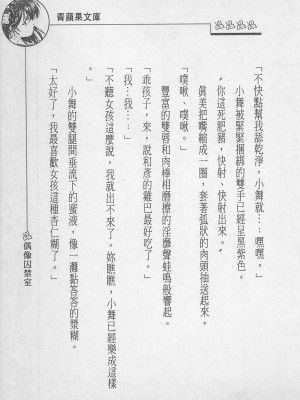 青蘋果文庫
「不快點幫我舔乾淨，小舞就…嘿嘿。」
小舞被緊緊捆綁的雙手已經呈黑紫色。
〝你這死肥豬，快射、快射出來。〞
真美把嘴縮成一圈，套著弧狀的肉頭抽送起來。
「噗啾、噗啾。」
豐富的雙唇和肉棒相磨擦的淫靡聲蛙鳴般響起。
「乖孩子，來，說和彥的雞巴最好吃了。」
「我…我…：」
「不聽女孩這麼說，我就出不來了。妳瞧瞧，小舞已經樂成這樣
。」
小舞的雙腿間垂流下的蜜液，像一灘黏答答的漿糊。
「太好了，我最喜歡女孩這種杏仁糊了。」
偶像囚禁室